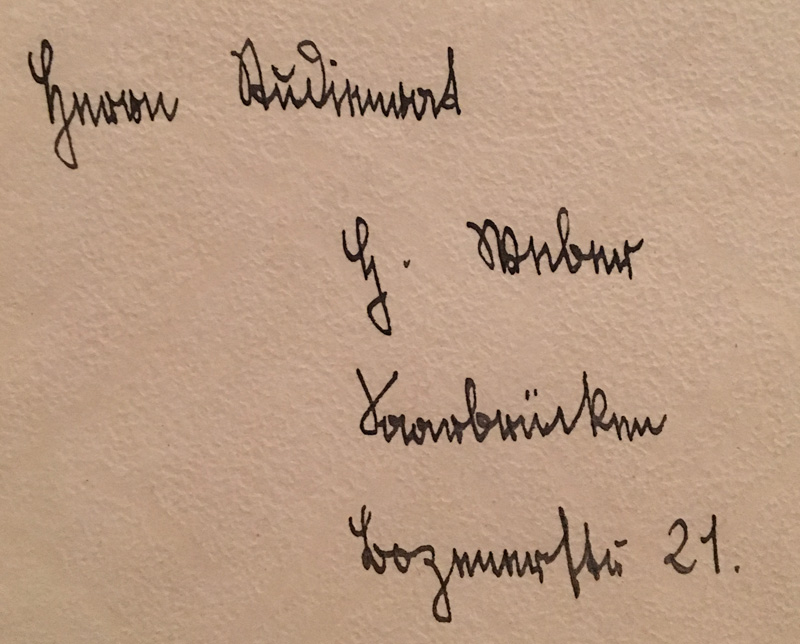 Herrn Studienrat
H. Weber
Saarbrücken
Bozenerstr 21.